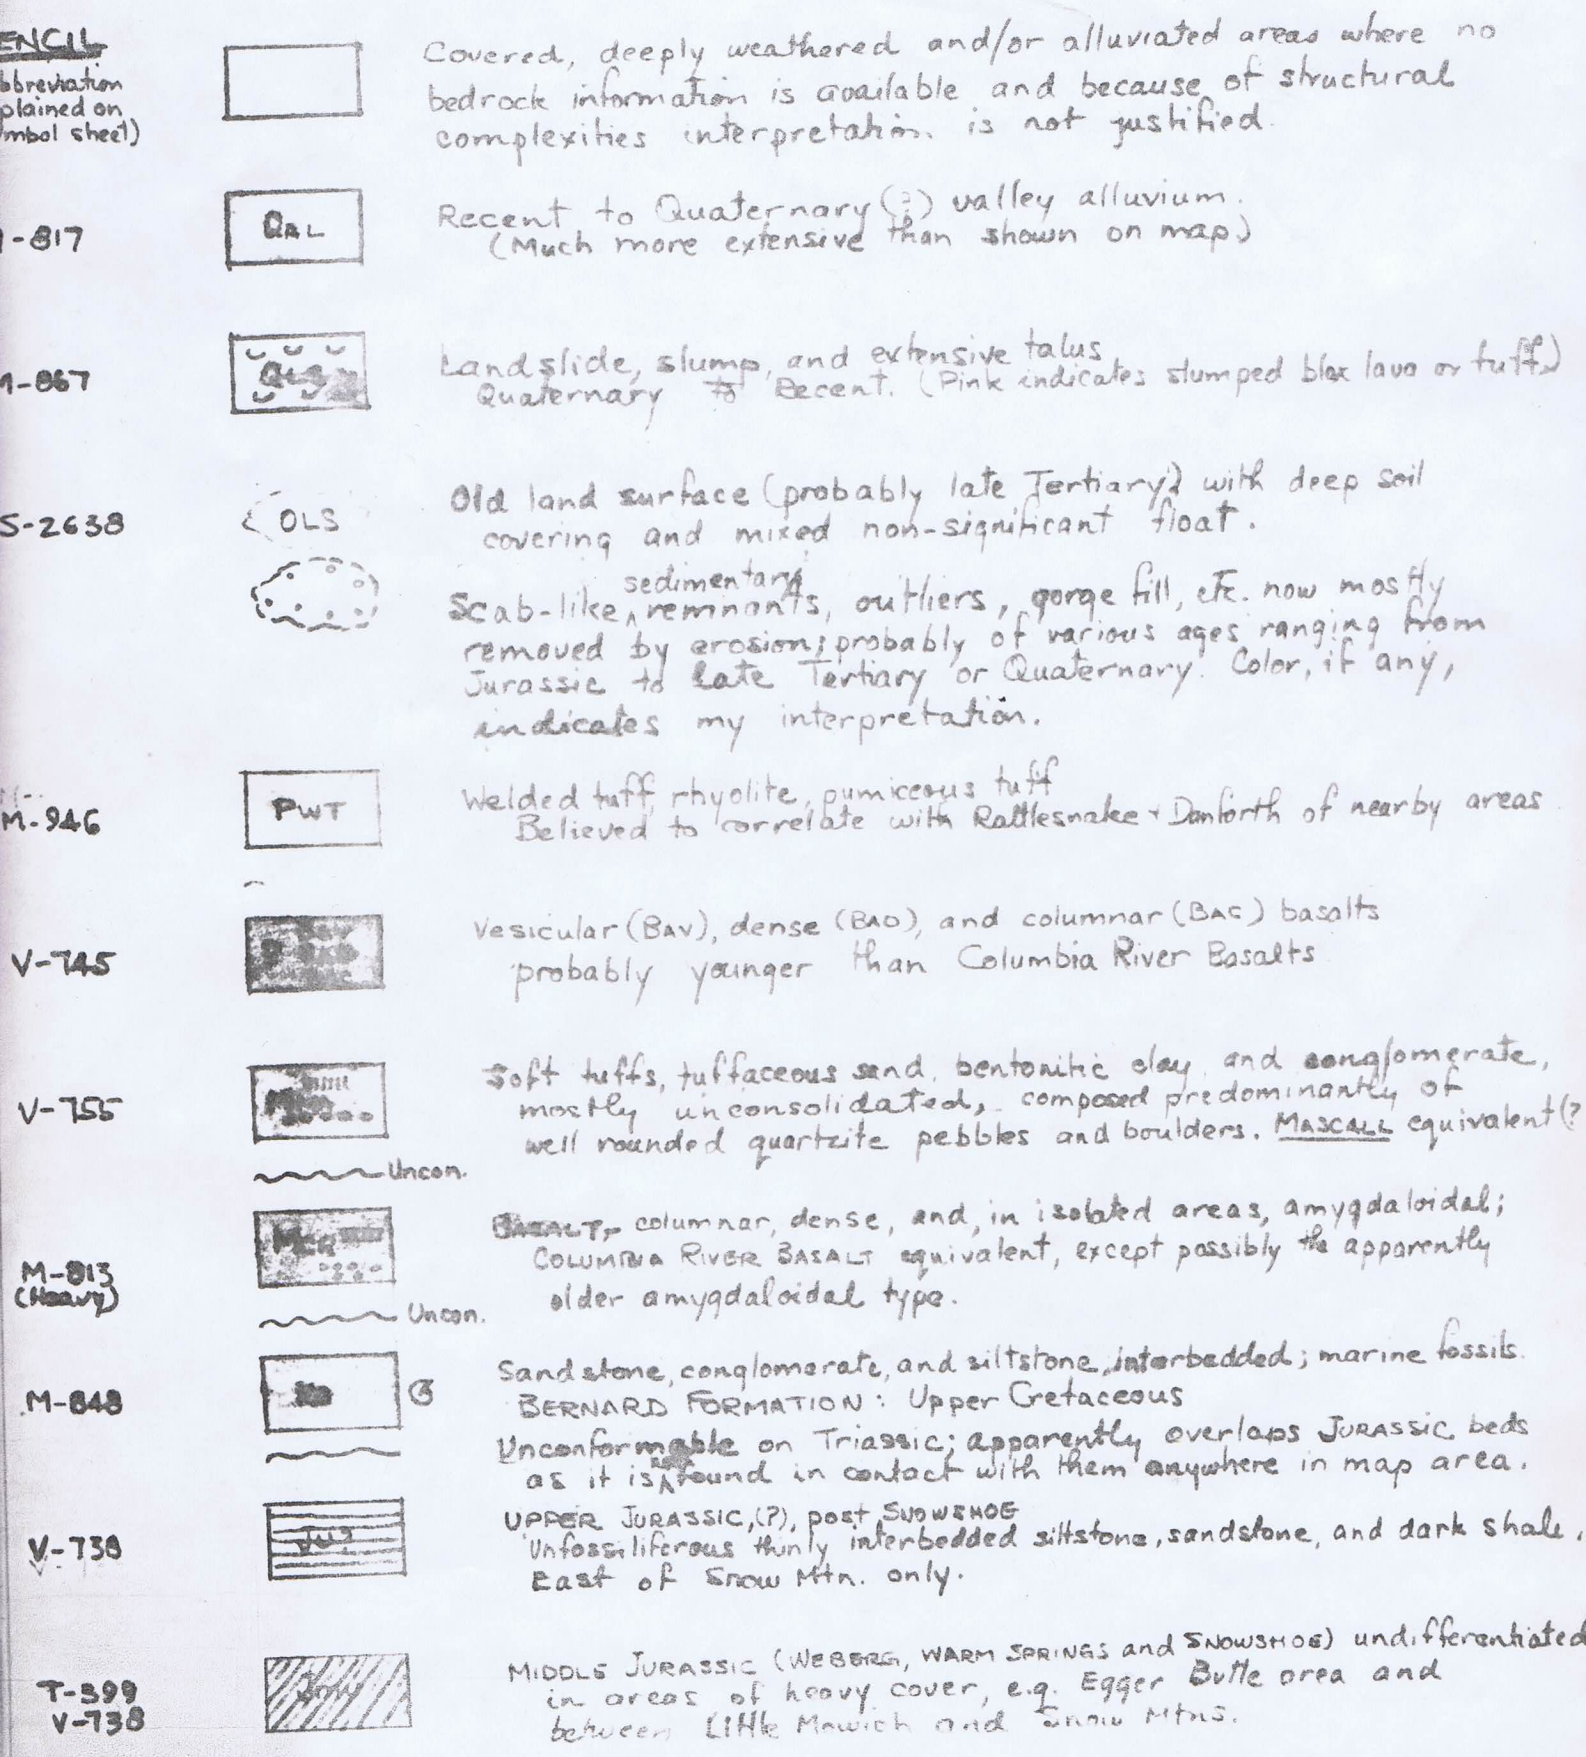 ENCIL
bbreviation
plained on
mbol sheet)
Covered, deeply weathered and/or alluviated areas where no
bedrock information is available and because of structural
complexities interpretation is not justified.
-817
QAL
Recent to Quaternary (?) valley alluvium.
(Much more extensive than shown on map)
-867
Landslide, slump, and extensive talus
Quaternary to Recent. (Pink indicates slumped blox lava or tuff.)
S-2638
OLS
Old land surface (probably late Tertiary) with deep soil
covering and mixed non-significant float.
sedimentary
Scab-like ^ remnants, outliers, gorge fill, etc. now mostly
removed by erosion; probably of various ages ranging from
Jurassic to late Tertiary or Quaternary. Color, if any,
indicates my interpretation.
M-946
PWT
Welded tuff, rhyolite, pumiceous tuff
Believed to correlate with Rattlesnake + Danforth of nearby areas
V-745
Vesicular (BAV), dense (BAD), and columnar (BAC) basalts
probably younger than Columbia River Basalts
V-755
Soft tuffs, tuffaceous sand, bentonitic clay and conglomerate,
mostly unconsolidated, composed predominantly of
well rounded quartzite pebbles and boulders. MASCALL equivalent (?
Uncon.
M-813
(Heavy)
BASALT, columnar, dense, and, in isolated areas, amygdaloidal;
COLUMBIA RIVER BASALT equivalent, except possibly the apparently
older amygdaloidal type.
Uncon.
M-848
Sandstone, conglomerate, and siltstone, interbedded; marine fossils.
BERNARD FORMATION: Upper Cretaceous
Unconformable on Triassic; apparently overlaps JURASSIC beds
as it is ^ found in contact with them anywhere in map area.
V-738
Ju?
UPPER JURASSIC, (?), post SNOWSHOE
Unfossiliferous thinly interbedded siltstone, sandstone, and dark shale,
East of Snow Mtn. only.
T-399
V-738
MIDDLE JURASSIC (WEBERG, WARM SPRINGS and SNOWSHOE) undifferentiated
in areas of heavy cover, e.g. Egger Butte area and
between Little Mowich and Snow Mtns.